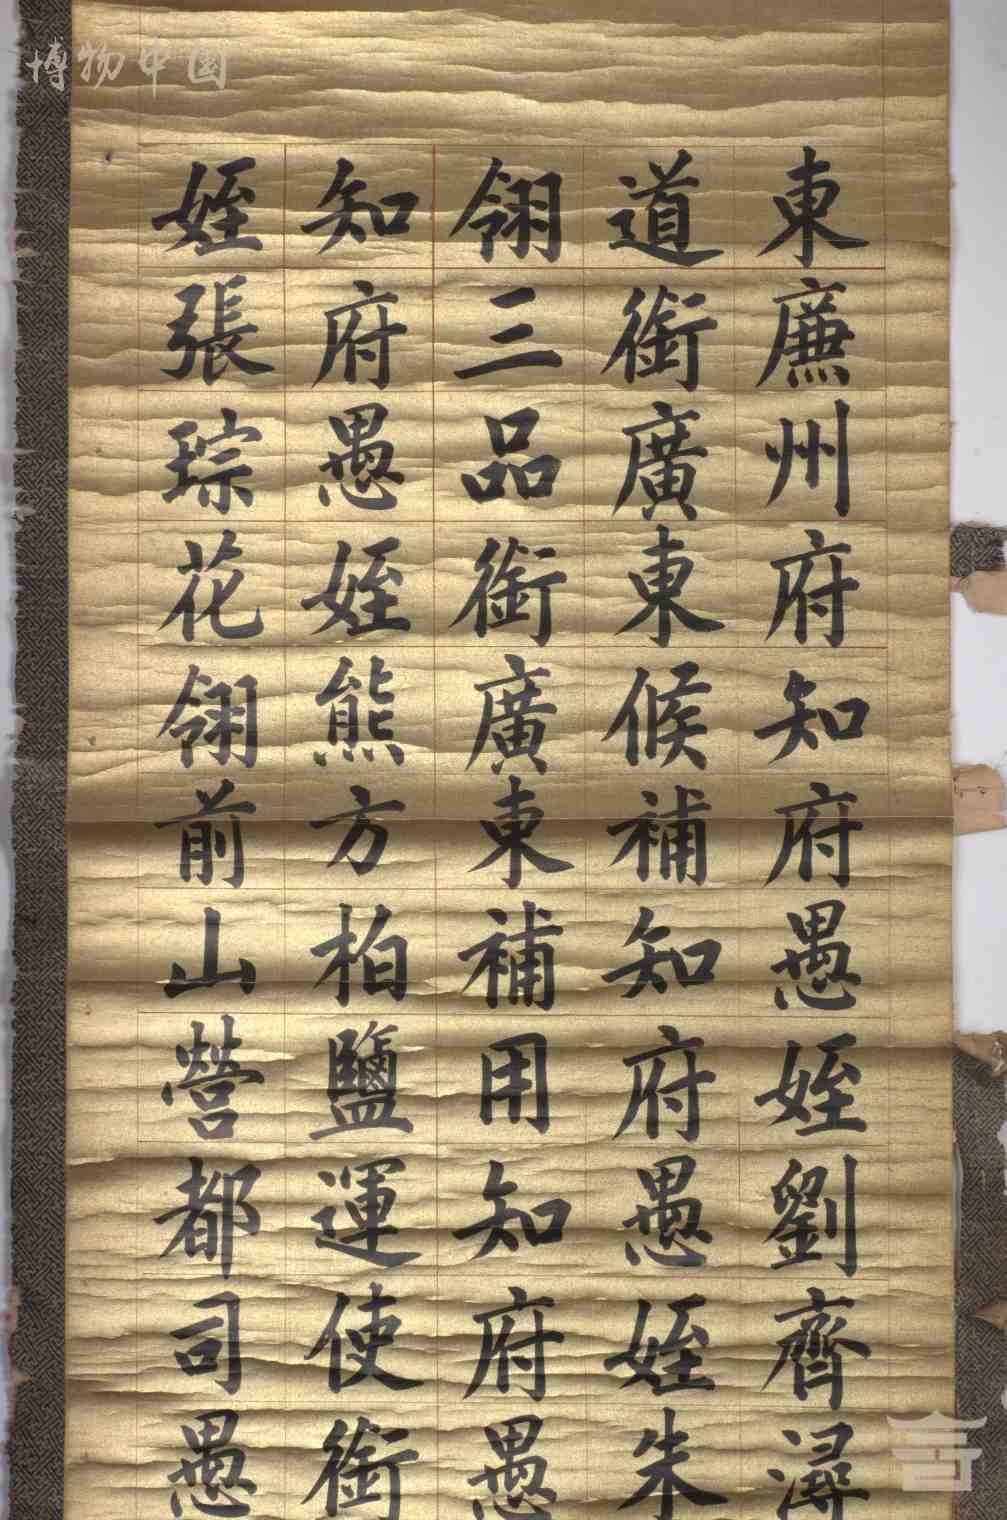 博物中国
東廉州府知府愚姪劉齊潯
道銜廣東候補知府愚姪朱
翎三品銜廣東補用知府愚
知府愚姪熊方柏鹽運使銜
姪張琮花翎前山營都司愚